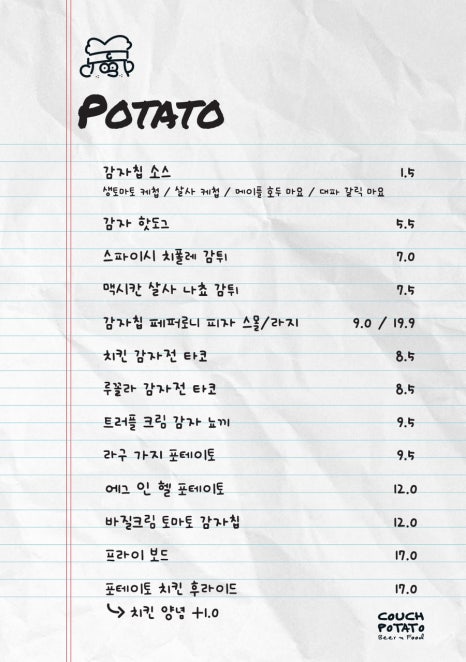 POTATO
감자칩 소스 1.5
생토마토 케첩 / 살사 케첩 / 메이플 호두 마요 / 대파 갈릭 마요
감자 핫도그 5.5
스파이시 치폴레 감튀 7.0
맥시칸 살사 나쵸 감튀 7.5
감자칩 페퍼로니 피자 스몰/라지 9.0 / 19.9
치킨 감자전 타코 8.5
루꼴라 감자전 타코 8.5
트러플 크림 감자 뇨끼 9.5
라구 가지 포테이토 9.5
에그 인 헬 포테이토 12.0
바질크림 토마토 감자칩 12.0
프라이 보드 17.0
포테이토 치킨 후라이드 17.0
↳ 치킨 양념 +1.0
COUCH
POTATO
Beer n Food